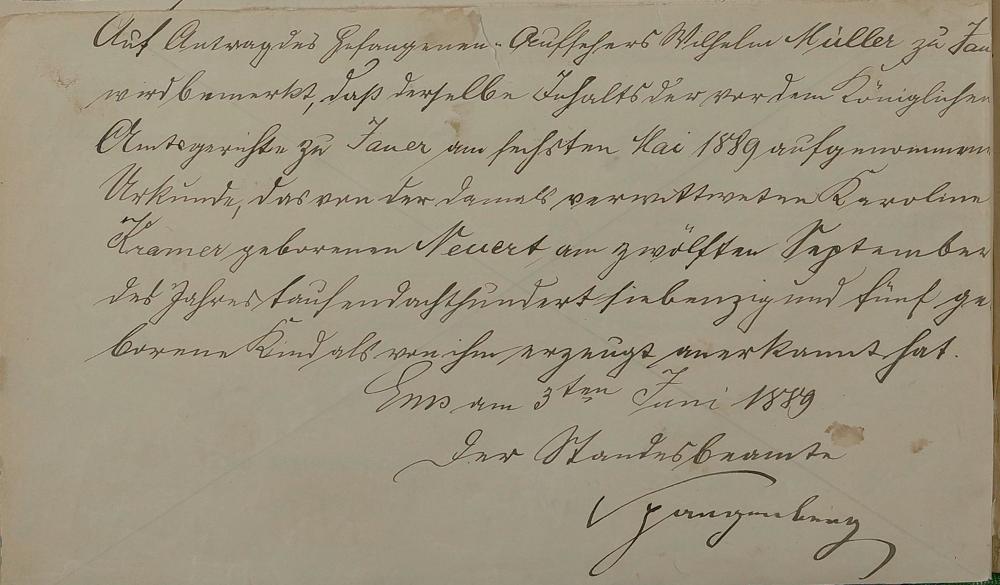 Auf Antrag des Gefangenen-Aufsehers Wilhelm Müller zu Jau
wird bemerkt, daß derselbe Inhalts der vor dem Königlichen
Amtsgerichte zu Jauer am sechsten Mai 1889 aufgenommen
Urkunde, das von der damals verwittweten Karoline
Kramer geborenen Neuert am zwölften September
des Jahres tausendachthundert siebenzig und fünf ge
borene Kind als von ihm erzeugt anerkannt hat.
Ems am 3ten Juni 1889
Der Standesbeamte
Spangenberg